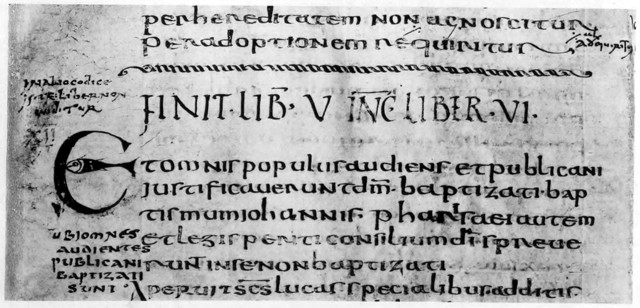 per hereditatem non agnoscitur
per adoptionem requiritur
adquiritur
IN ALIO CODICE
ISTE LIBER NON
FINIT·LIB̅·V INC̅ LIBER·VI·
Et omnis populus audiens et publicani
iustificauerunt dm̅ baptizati·bap
tismum iohannis· pharisaei autem
et legis periti consilium di̅ spreue
runt in se non baptizati·
Aperuit scs̅ lucas specialibus additis
UBI OMNES
AUDIENTES
PUBLICANI
BAPTIZATI
SUNT